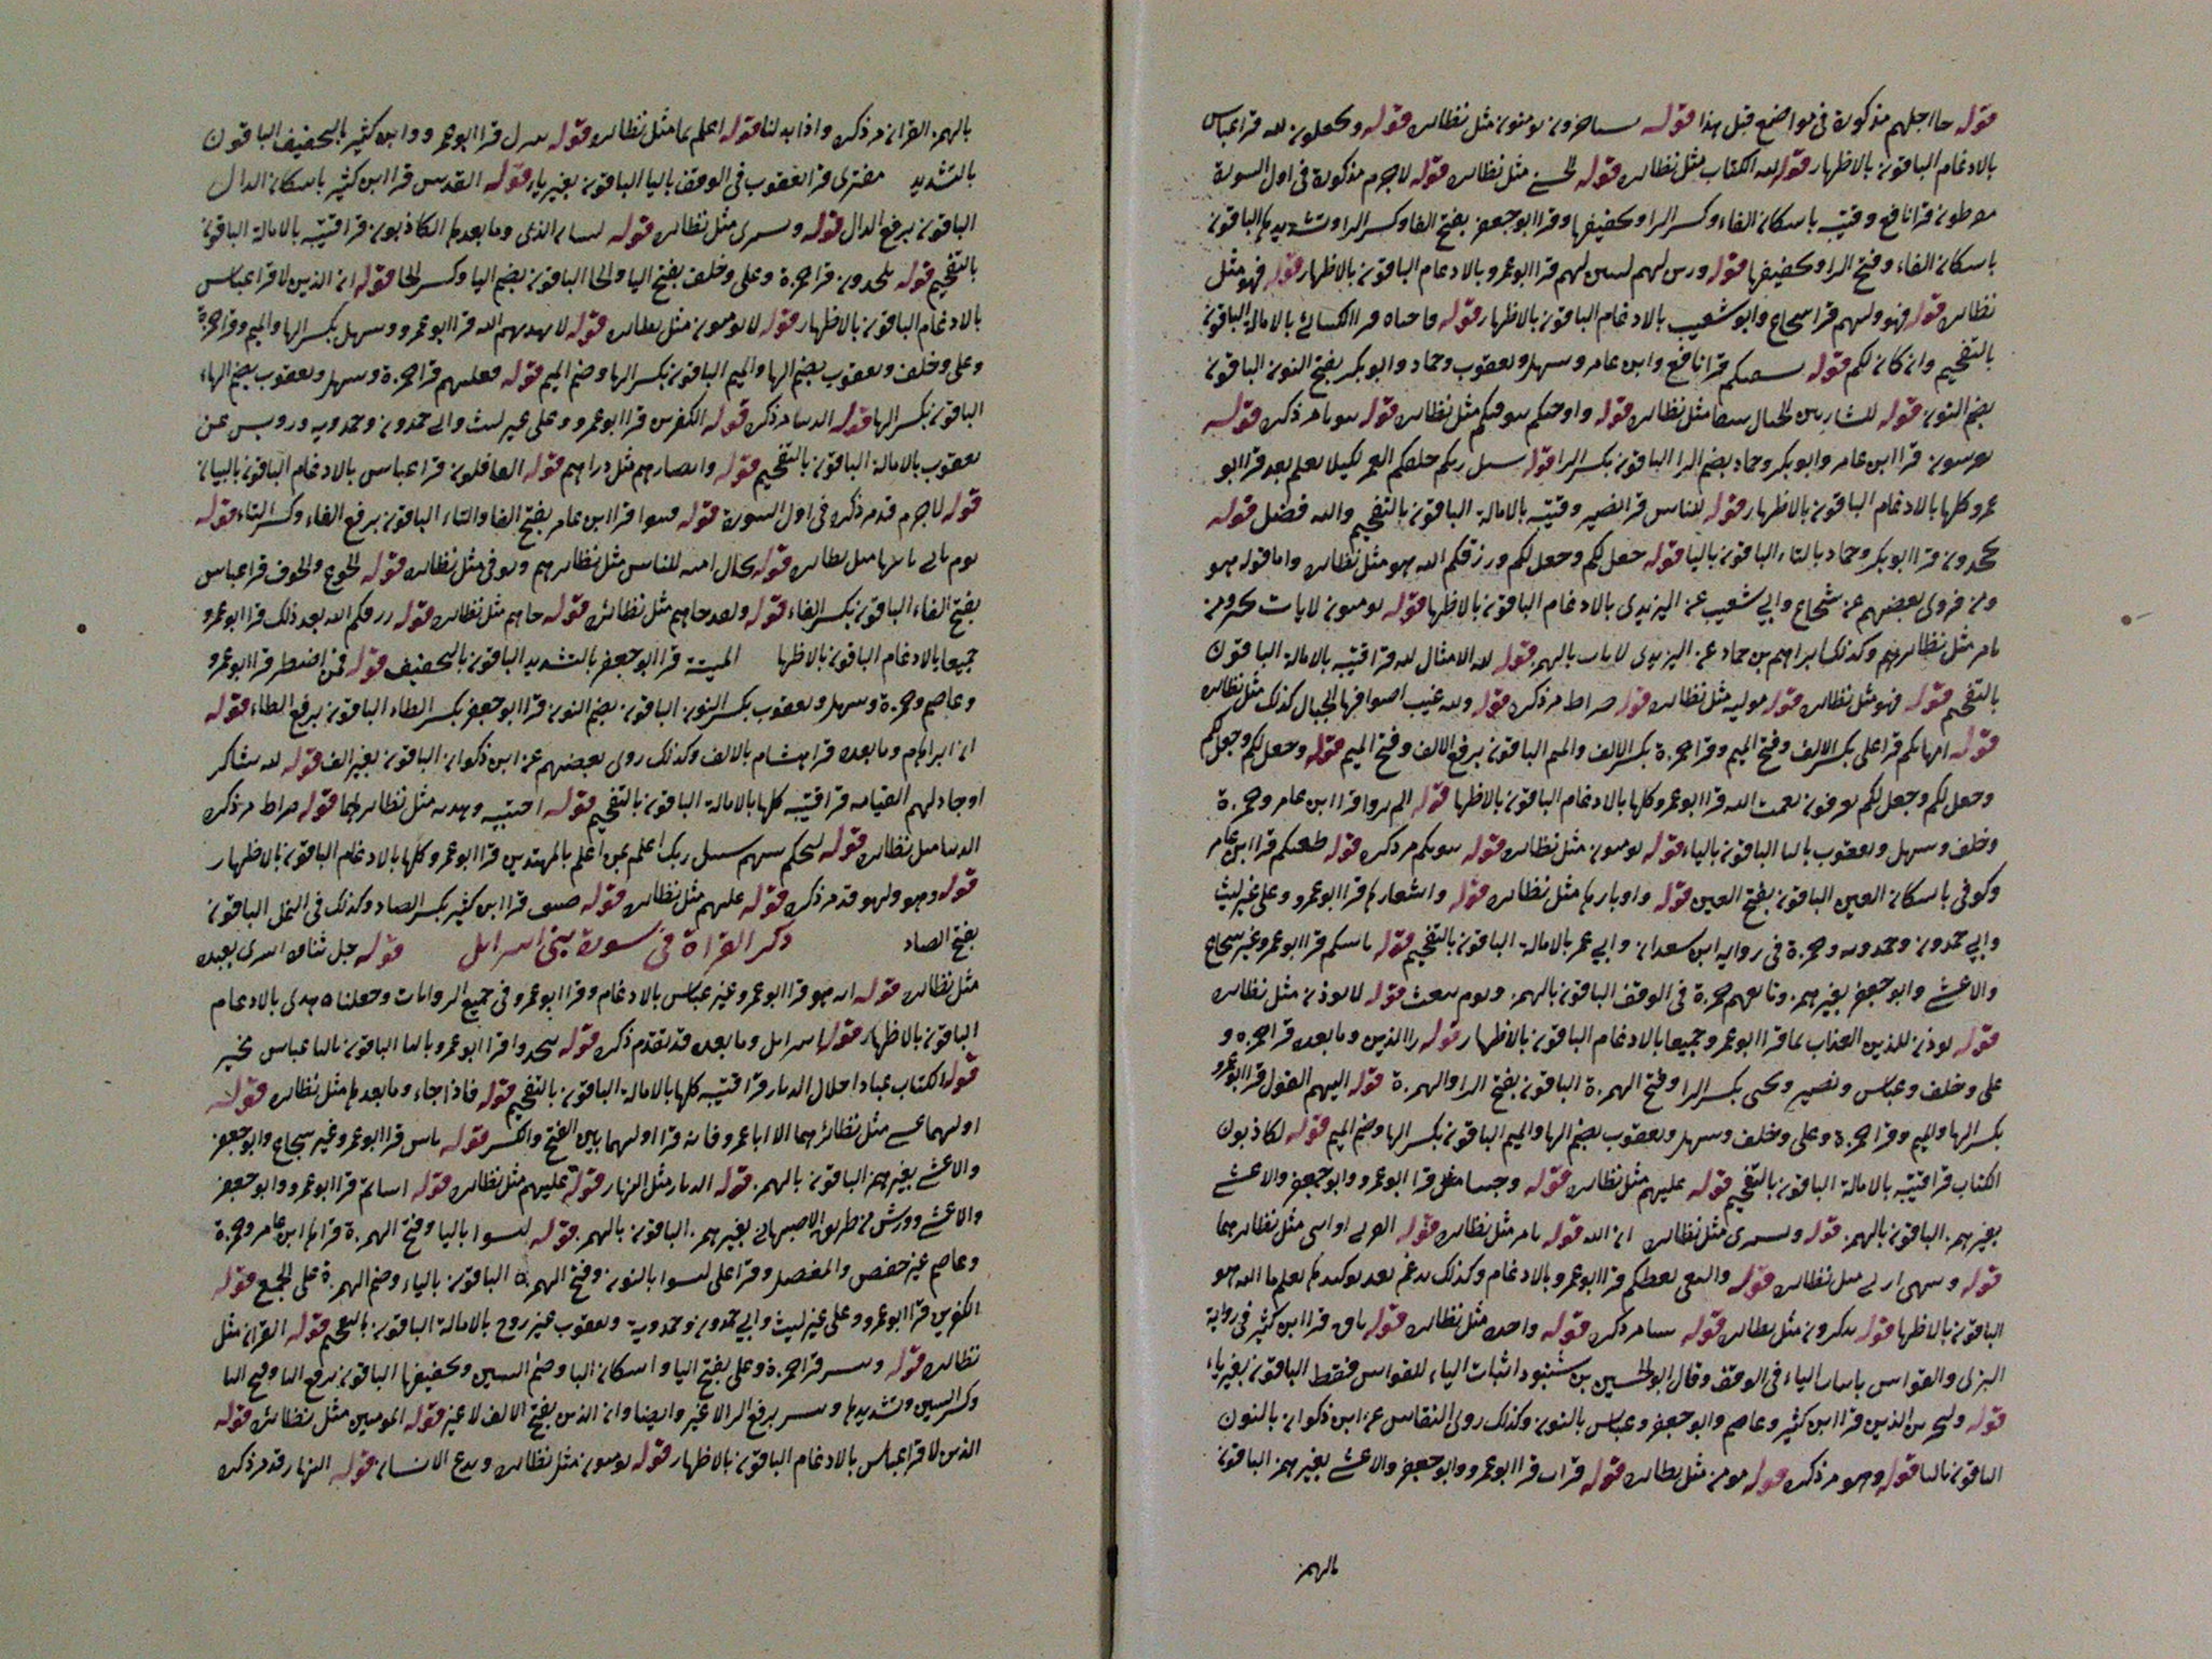 قوله جا اجلهم مذكورة في مواضع قبل هذا قوله ستاخرون يومنون مثل نظائره قوله ويجعلون لله قرا عباس
بالادغام الباقون بالاظهار قوله الكتاب مثل نظائره قوله الحسنى مثل نظائره قوله لا جرم مذكورة في اول السورة
مفرطون قرا نافع وقتيبه باسكان الفاء وكسر الرا وتخفيفها وقرا ابو جعفر بفتح الفا وكسر الرا وتشديدها الباقون
باسكان الفاء وفتح الرا وتخفيفها قوله لهم قرا ابو عمرو بالادغام الباقون بالاظهار قوله فهو مثل
نظائره قوله فهو وليهم قرا شجاع وابو شعيب بالادغام الباقون بالاظهار قوله فاحياه قرا الكسائى بالامالة الباقون
بالتفخيم وان كان لكم قوله نسقيكم قرا نافع وابن عامر وسهل ويعقوب وحماد وابو بكر بفتح النون الباقون
بضم النون قوله للشاربين مثل نظائره قوله واوحى مثل نظائره قوله بيوتا مر ذكره قوله
يعرشون قرا ابن عامر وابو بكر وحماد بضم الرا الباقون بكسر الرا قوله سبل ربك خلقكم العمر لكيلا يعلم بعد قرا ابو
عمرو كلها بالادغام الباقون بالاظهار قوله للناس قرا نصير وقتيبه بالامالة الباقون بالتفخيم والله فضل قوله
يجحدون قرا ابو بكر وحماد بالتاء الباقون باليا قوله جعل لكم وجعل لكم ورزقكم الله هو مثل نظائره واما قوله هو
ومن فروى بعضهم عن شجاع وابي شعيب عن اليزيدى بالادغام الباقون بالاظها قوله يومنون لايات
مر مثل نظائرهم وكذلك ابراهيم بن حماد عن اليزيدى بالهمز قوله لله الامثال لله قرا قتيبه بالامالة الباقون
بالتفخيم قوله فهو مثل نظائره قوله موليه مثل نظائره قوله صراط مر ذكره قوله ولله غيب الجبال كذلك مثل نظائره
قوله امهاتكم قرا على بكسر الالف وفتح الميم وقرا حمزة بكسر الالف والميم الباقون برفع الالف وفتح الميم قوله وجعل لكم وجعل لكم
وجعل لكم وجعل لكم يعرفون نعمت الله قرا ابو عمرو كلها بالادغام الباقون بالاظها قوله الم يروا قرا ابن عامر وحمزة
وخلف وسهل ويعقوب بالتا الباقون بالياء قوله يومنون مثل نظائره قوله بيوتكم مر ذكره قوله ظعنكم قرا ابن عامر
وكوفى باسكان العين الباقون بفتح العين قوله واوبارها مثل نظائره قوله واشعارها قرا ابو عمرو وعلى غير ليث
وابي حمدون وحمدويه وحمزة في رواية ابن سعدان وابي عمر بالامالة الباقون بالتفخيم قوله باسكم قرا ابو عمرو غير شجاع
والاعشى وابو جعفر بغير همز وتابعهم حمزة في الوقف الباقون بالهمز ويوم نبعث قوله لا يوذن مثل نظائره
قوله يوذن للذين العذاب بما قرا ابو عمرو جميعا بالادغام الباقون بالاظهار قوله را الذين وما بعده قرا حمزة و
على وخلف وعباس ونصير ويحيى بكسر الرا وفتح الهمزة الباقون بفتح الرا والهمزة قوله اليهم القول قرا ابو عمرو
بكسر الها والميم وقرا حمزة وعلى وخلف وسهل ويعقوب بضم الها والميم الباقون بكسر الها وضم الميم قوله لكاذبون
الكتاب قرا قتيبه بالامالة الباقون بالتفخيم قوله عليهم مثل نظائره قوله وجينا قرا ابو عمرو وابو جعفر والاعشى
بغير همز الباقون بالهمز قوله وبشرى مثل نظائره ان الله قوله يامر مثل نظائره قوله القربى او انثى مثل نظائرهما
قوله وينهى مثل نظائره قوله والبغى يعظكم قرا ابو عمرو بالادغام وكذلك يدغم بعد توكيدها يعلم ما الله هو
الباقون بالاظها قوله تذكرون مثل نظائره قوله مر ذكره قوله واحدة مثل نظائره قوله باق قرا ابن كثير في رواية
البزى والقواس باثبات الياء في الوقف وقال ابو الحسين بن شنبوذ اثبات الياء للقواس فقط الباقون بغير ياء
قوله ولنجزين الذين قرا ابن كثير وعاصم وابو جعفر وعباس بالنون وكذلك روى النقاش عن ابن ذكوان بالنون
الباقون باليا قوله وهو مر ذكره قوله مومن مثل نظائره قوله قرات قرا ابو عمرو وابو جعفر والاعشى بغير همز الباقون
بالهمز
بالهمز القران مر ذكره واذا بدلنا قوله اعلم بما مثل نظائره قوله ينزل قرا ابو عمرو وابن كثير بالتخفيف الباقون
بالتشديد مفترى قرا يعقوب في الوقف باليا الباقون بغير يا قوله القدس قرا ابن كثير باسكان الدال
الباقون برفع الدال قوله وبشرى مثل نظائره قوله لسان الذى وما بعدها الكاذبون قرا قتيبه بالامالة الباقون
بالتفخيم قوله يلحدون قرا حمزة وعلى وخلف بفتح اليا والحا الباقون بضم اليا وكسر الحا قوله ان الذين لا قرا عباس
بالادغام الباقون بالاظهار قوله لا يومنون مثل نظائره قوله لا يهديهم الله قرا ابو عمرو وسهل بكسر الها والميم وقرا حمزة
وعلى وخلف ويعقوب بضم الها والميم الباقون بكسر الها وضم الميم قوله فعليهم قرا حمزة وسهل ويعقوب بضم الهاء
الباقون بكسر الها قوله الدنيا مر ذكره قوله الكفرين قرا ابو عمرو وعلى غير ليث وابي حمدون وحمدويه ورويس عن
يعقوب بالامالة الباقون بالتفخيم قوله وابصارهم مثل دراهم قوله الغافلون قرا عباس بالادغام الباقون بالبيان
قوله لا جرم قد مر ذكره في اول السورة قوله فتنوا قرا ابن عامر بفتح الفا والتاء الباقون برفع الفاء وكسر التاء قوله
يوم تاتى مثل نظائره قوله للناس مثل نظائرهم وتوفى مثل نظائره قوله الجوع والخوف قرا عباس
بفتح الفاء الباقون بكسر الفاء قوله ولقد جاهم مثل نظائره قوله جاهم مثل نظائره قوله رزقكم الله بعد ذلك قرا ابو عمرو
جميعا بالادغام الباقون بالاظها الميتة قرا ابو جعفر بالتشديد الباقون بالتخفيف قوله فمن اضطر قرا ابو عمرو
وعاصم وحمزة وسهل ويعقوب بكسر النون الباقون بضم النون قرا ابو جعفر بكسر الطاء الباقون برفع الطاء قوله
ان ابراهام وما بعده قرا هشام بالالف وكذلك روى بعضهم عن ابن ذكوان الباقون بغير الف قوله لله شاكر
اوجادلهم القيامه قرا قتيبه كلها بالامالة الباقون بالتفخيم قوله اجتبيه وهديه مثل نظائرهما قوله صراط مر ذكره
الدنيا مثل نظائره قوله ليحكم بينهم سبيل ربك اعلم بمن اعلم بالمهتدين قرا ابو عمرو وكلها بالادغام الباقون بالاظهار
قوله وهو ولهو قد مر ذكره قوله عليهم مثل نظائره قوله ضيق قرا ابن كثير بكسر الضاد وكذلك في النمل الباقون
بفتح الضاد ذكر القراة في سورة بنى اسرايل قوله جل ثناؤه اسرى بعبده
مثل نظائره قوله انه هو قرا ابو عمرو غير عباس بالادغام وقرا ابو عمرو في جميع الروايات وجعلناه هدى بالادغام
الباقون بالاظهار قوله اسرايل وما بعده قد تقدم ذكره قوله يتخذوا قرا ابو عمرو باليا الباقون بالتا عباس يخير
قوله الكتاب عبادا خلال الديار قرا قتيبه كلها بالامالة الباقون بالتفخيم قوله فاذا جاء وما بعدها مثل نظائره قوله
اوليهما عسى مثل نظائرهما الا ابا عمرو فانه قرا اوليهما بين الفتح والكسر قوله باس قرا ابو عمرو غير شجاع وابو جعفر
والاعشى بغير همز الباقون بالهمز قوله الديار مثل النهار قوله عليهم مثل نظائره قوله اسائم قرا ابو عمرو وابو جعفر
والاعشى وورش من طريق الاصبهانى بغير همز الباقون بالهمز قوله ليسوا باليا وفتح الهمزة قراها ابن عامر وحمزة
وعاصم غير حفص والمفضل وقرا على لنسوا بالنون وفتح الهمزة الباقون بالياء وضم الهمزة على الجمع قوله
الكفرين قرا ابو عمرو وعلى غير ليث وابي حمدون وحمدوية ويعقوب غير روح بالامالة الباقون بالتفخيم قوله القران مثل
نظائره قوله ويبشر قرا حمزة وعلى بفتح اليا واسكان البا وضم الشين وتخفيفها الباقون برفع اليا وفتح البا
وكسر الشين وتشديدها ويبشر برفع الرا لا غير وايضا وان الذين بفتح الالف لا غير قوله المومنين مثل نظائره قوله
الذين لا قرا عباس بالادغام الباقون بالاظهار قوله يومنون مثل نظائره ويدع الانسان قوله النهار قد مر ذكره